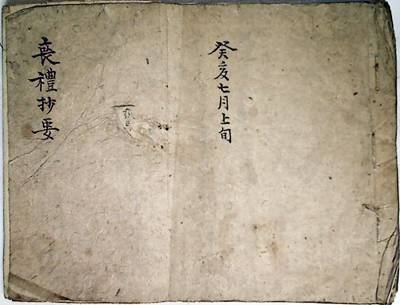 癸亥七月上旬
喪禮抄要